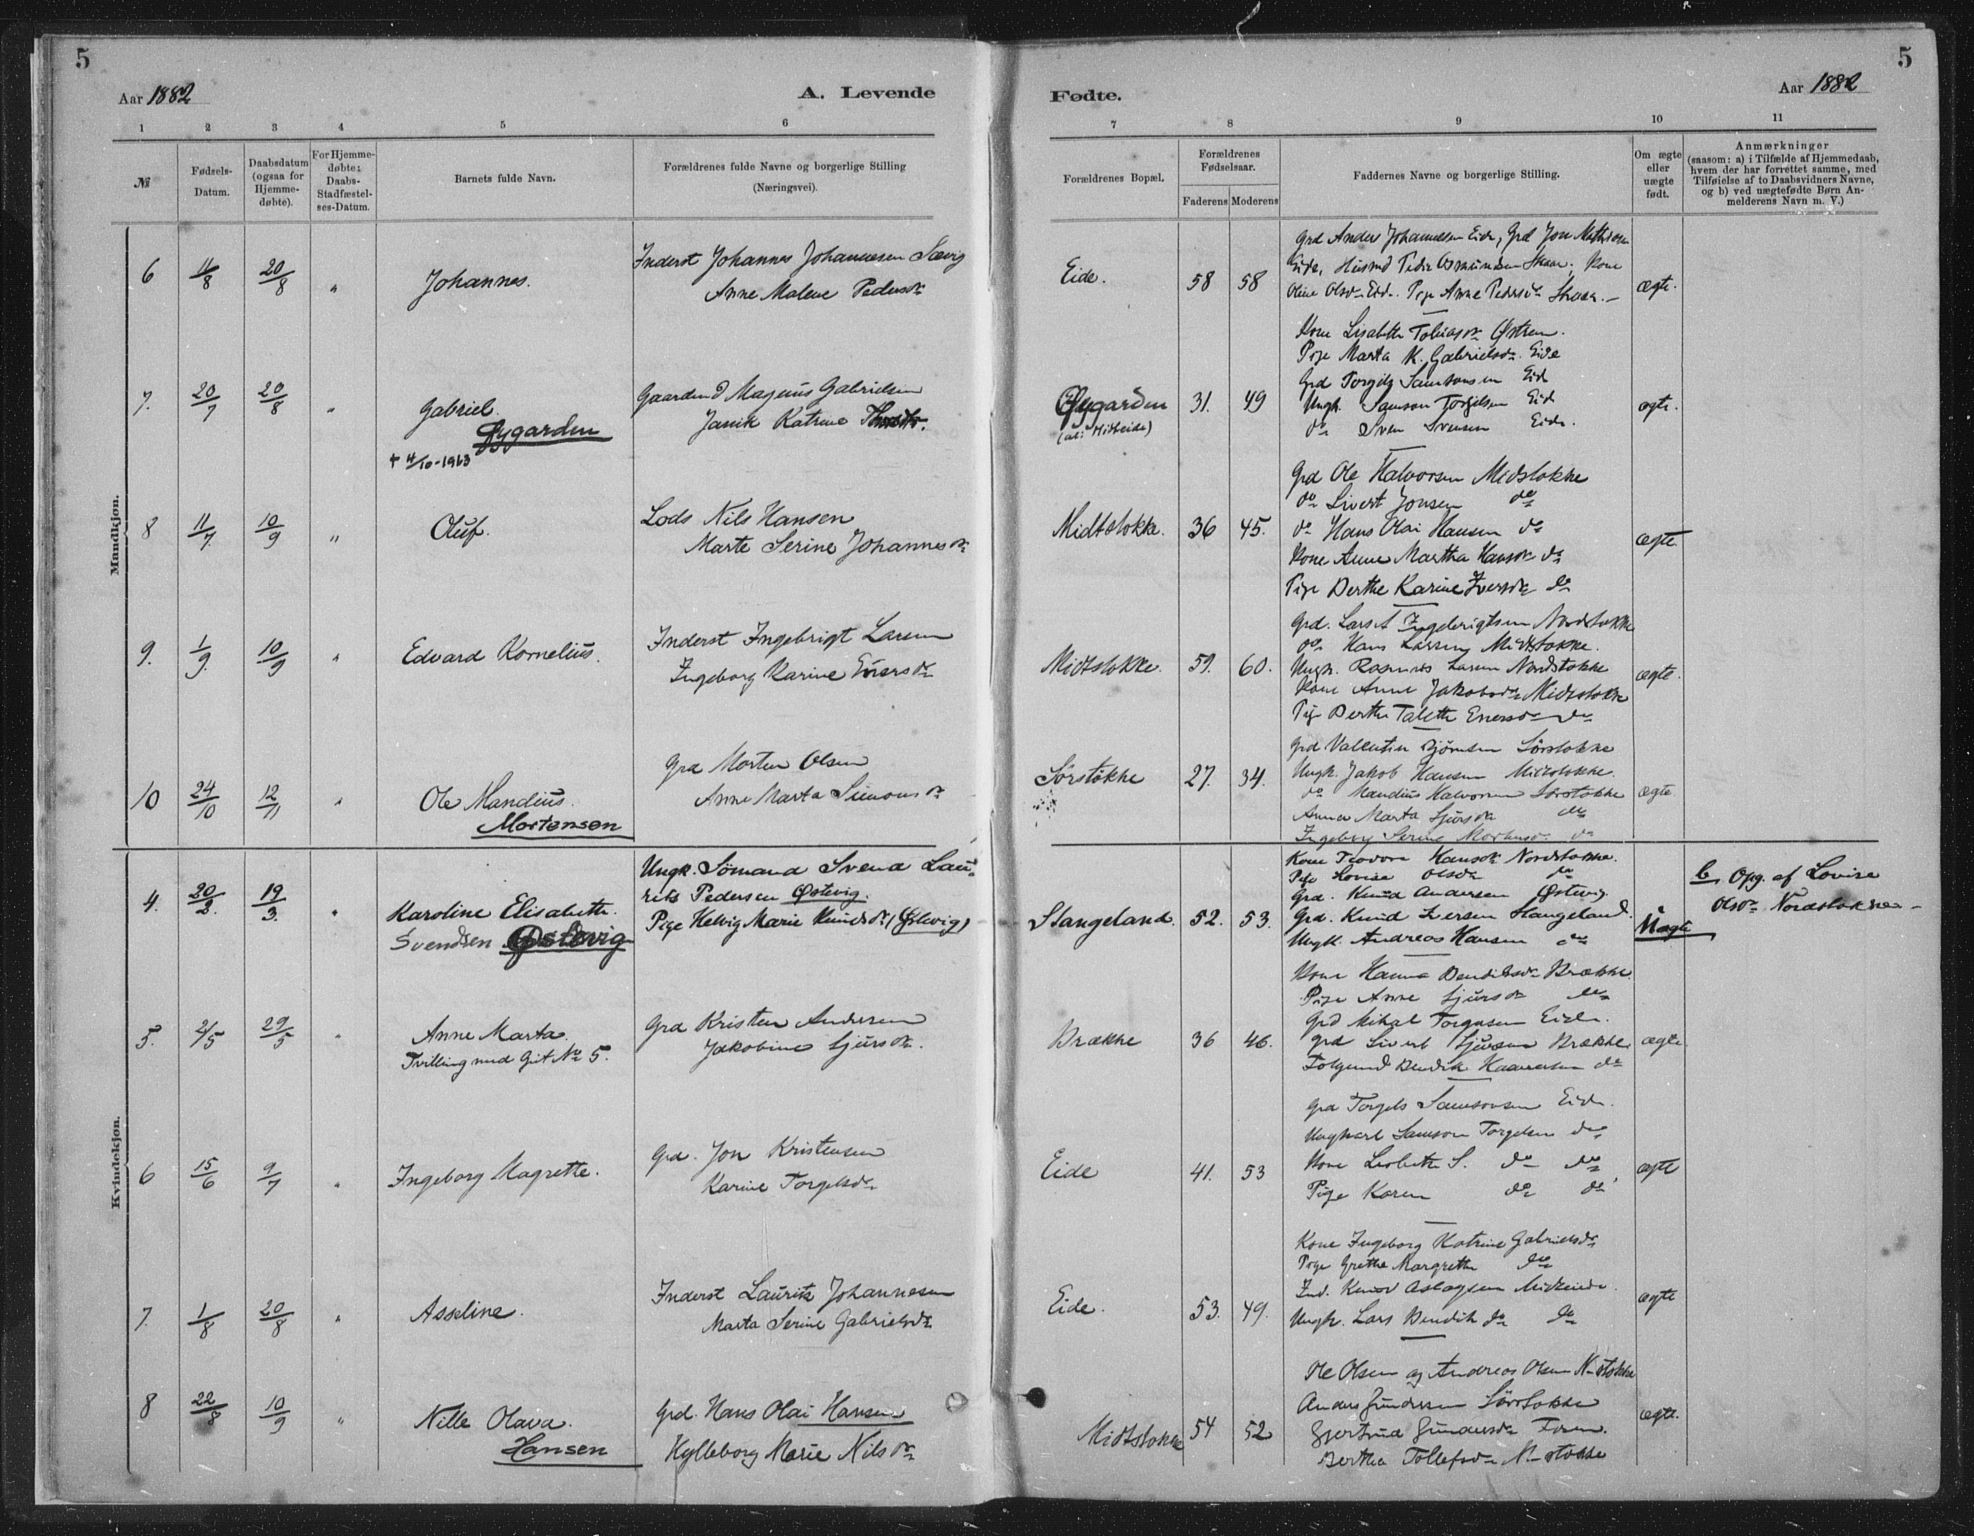 5
5
Aar 1882
A. Levende
Fødte.
Aar 1882
1
2
3
4
5
6
7
8
9
10
11
№
Fødsels-
Datum.
Daabsdatum
(ogsaa for
Hjemme-
døbte).
For Hjemme-
døbte:
Daabs-
Stadfæstel-
ses-Datum.
Barnets fulde Navn.
Forældrenes fulde Navne og borgerlige Stilling
(Næringsvei).
Forældrenes Bopæl.
Forældrenes
Fødselsaar.
Faderens
Moderens
Faddernes Navne og borgerlige Stilling.
Om ægte
eller
uægte
født.
Anmærkninger
(saasom: a) i Tilfælde af Hjemmedaab,
hvem der har forrettet samme, med
Tilføielse af to Daabsvidners Navne,
og b) ved uægtefødte Børn An-
melderens Navn m. V.)
Mandkjøn.
6
11/8
20/8
"
Johannes.
Inderst Johannes Johannesen Sævig
Anne Malene Pedersdr
Eide.
58
58
Grd Anders Johannesen Eide, Grd Jon Mathisen
Eide, Husmd Peder Asmundsen Skaar, Kone
Oline Olsdr Eide. Pige Anne Pedersdr Skaar.
ægte.
7.
20/7
20/8
"
Gabriel.
Øygarden
† 4/10-1963
Gaardmd Magnus Gabrielsen
Janik Katrine
Øygarden
31.
49
Kone Lisabeth Tobiasdr Østrem.
Pige Marta K. Gabrielsdr. Eide
Grd Torgils Samsonsen Eid
Ungk. Samson Torgilsen Eid
do Sven Svensen Eide.
ægte.
8
11/7
10/9
"
Oluf.
Lods Nils Hansen
Marte Serine Johannesdr
Midtstokke.
36
45.
Grd Ole Halvorsen Midstokke
do Sivert Jonsen do
do Hans Olai Hansen do
Kone Anne Martha Hansdr do
Pige Berthe Karine Iversdr do
ægte
9.
1/9.
10/9
"
Edvard Kornelius.
Inderst Ingebrigt Larsen
Ingeborg Karine Einersdr
Midtstokke.
59.
60.
Grd. Lars Ingebrigtsen Nordstokke
do. Hans Larsen Midstokke.
Ungk. Rasmus Larsen Nordstokke
Kone Anne Jakobsdr Midstokke
Pige Berthe Taletta Enersdr do
ægte.
10
24/10
12/11
"
Ole Mandius.
Mortensen
Grd Morten Olsen
Anne Marta Simonsdr
Sørstokke
27.
34.
Grd Valentin Bjørnsen Sørstokke
Ungk. Jakob Hansen Midstokke.
do Mandius Halvorsen Sørstokke
Anna Marta Sjursdr do
Ingeborg Serine Mortensdr. do
ægte
Kvindekjøn.
4.
20/2.
19/3.
"
Karoline Elisabeth.
Svendsen Østevig
Ungk. Sømand Svend Lau-
rits Pedersen Østevig.
Pige Helvig Marie Knudsdr (Østevig)
Stangeland.
52.
53.
Kone Teodora Hansdr Nordstokke.
Pige Lovise Olsdr do
Grd. Knud Andersen Østevig
Grd. Knud Iversen Stangeland.
Ungk. Andreas Hansen do
Uægte
b Opg. af Lovise
Olsdr Nordstokke
5.
2/5
29/5
"
Anne Marta.
Tvilling med Gut No 5.
Grd Kristen Andersen
Jakobine Sjursdr.
Brække
36
46.
Kone Hanna Bendiksdr Brække
Pige Anne Sjursdr do
Grd Mikal Torgersen Eide.
Grd Sivert Sjursen Brække
Bendik do
ægte
6
15/6
9/7
"
Ingeborg Magrette.
Grd. Jon Kristensen
Karine Torgelsdr
Eide
41.
53
Grd Torgels Samsonsen Eide.
Ungkarl Samson Torgelsen do
Kone Lisbeth S. do do
Pige Karen do do
ægte
7.
1/8
20/8
"
Asseline.
Inderst Laurits Johannesen
Marta Serine Gabrielsdr
Eide.
53.
49.
Kone Ingeborg Katrine Gabrielsdr
Pige Grethe Margrethe do
Ind. Knud Aslagsen Midteide.
Ungk. Lars Bendik do do
ægte
8
22/8
10/9
"
Nille Olava.
Hansen
Grd. Hans Olai Hansen
Hylleborg Marie Nilsdr
Midtstokke
54
52
Ole Olsen og Andreas Olsen N-stokke
Anders Gundersen Sørstokke
Gjertrud Gundersdr
Bertha Tollefsdr N-stokke
ægte.